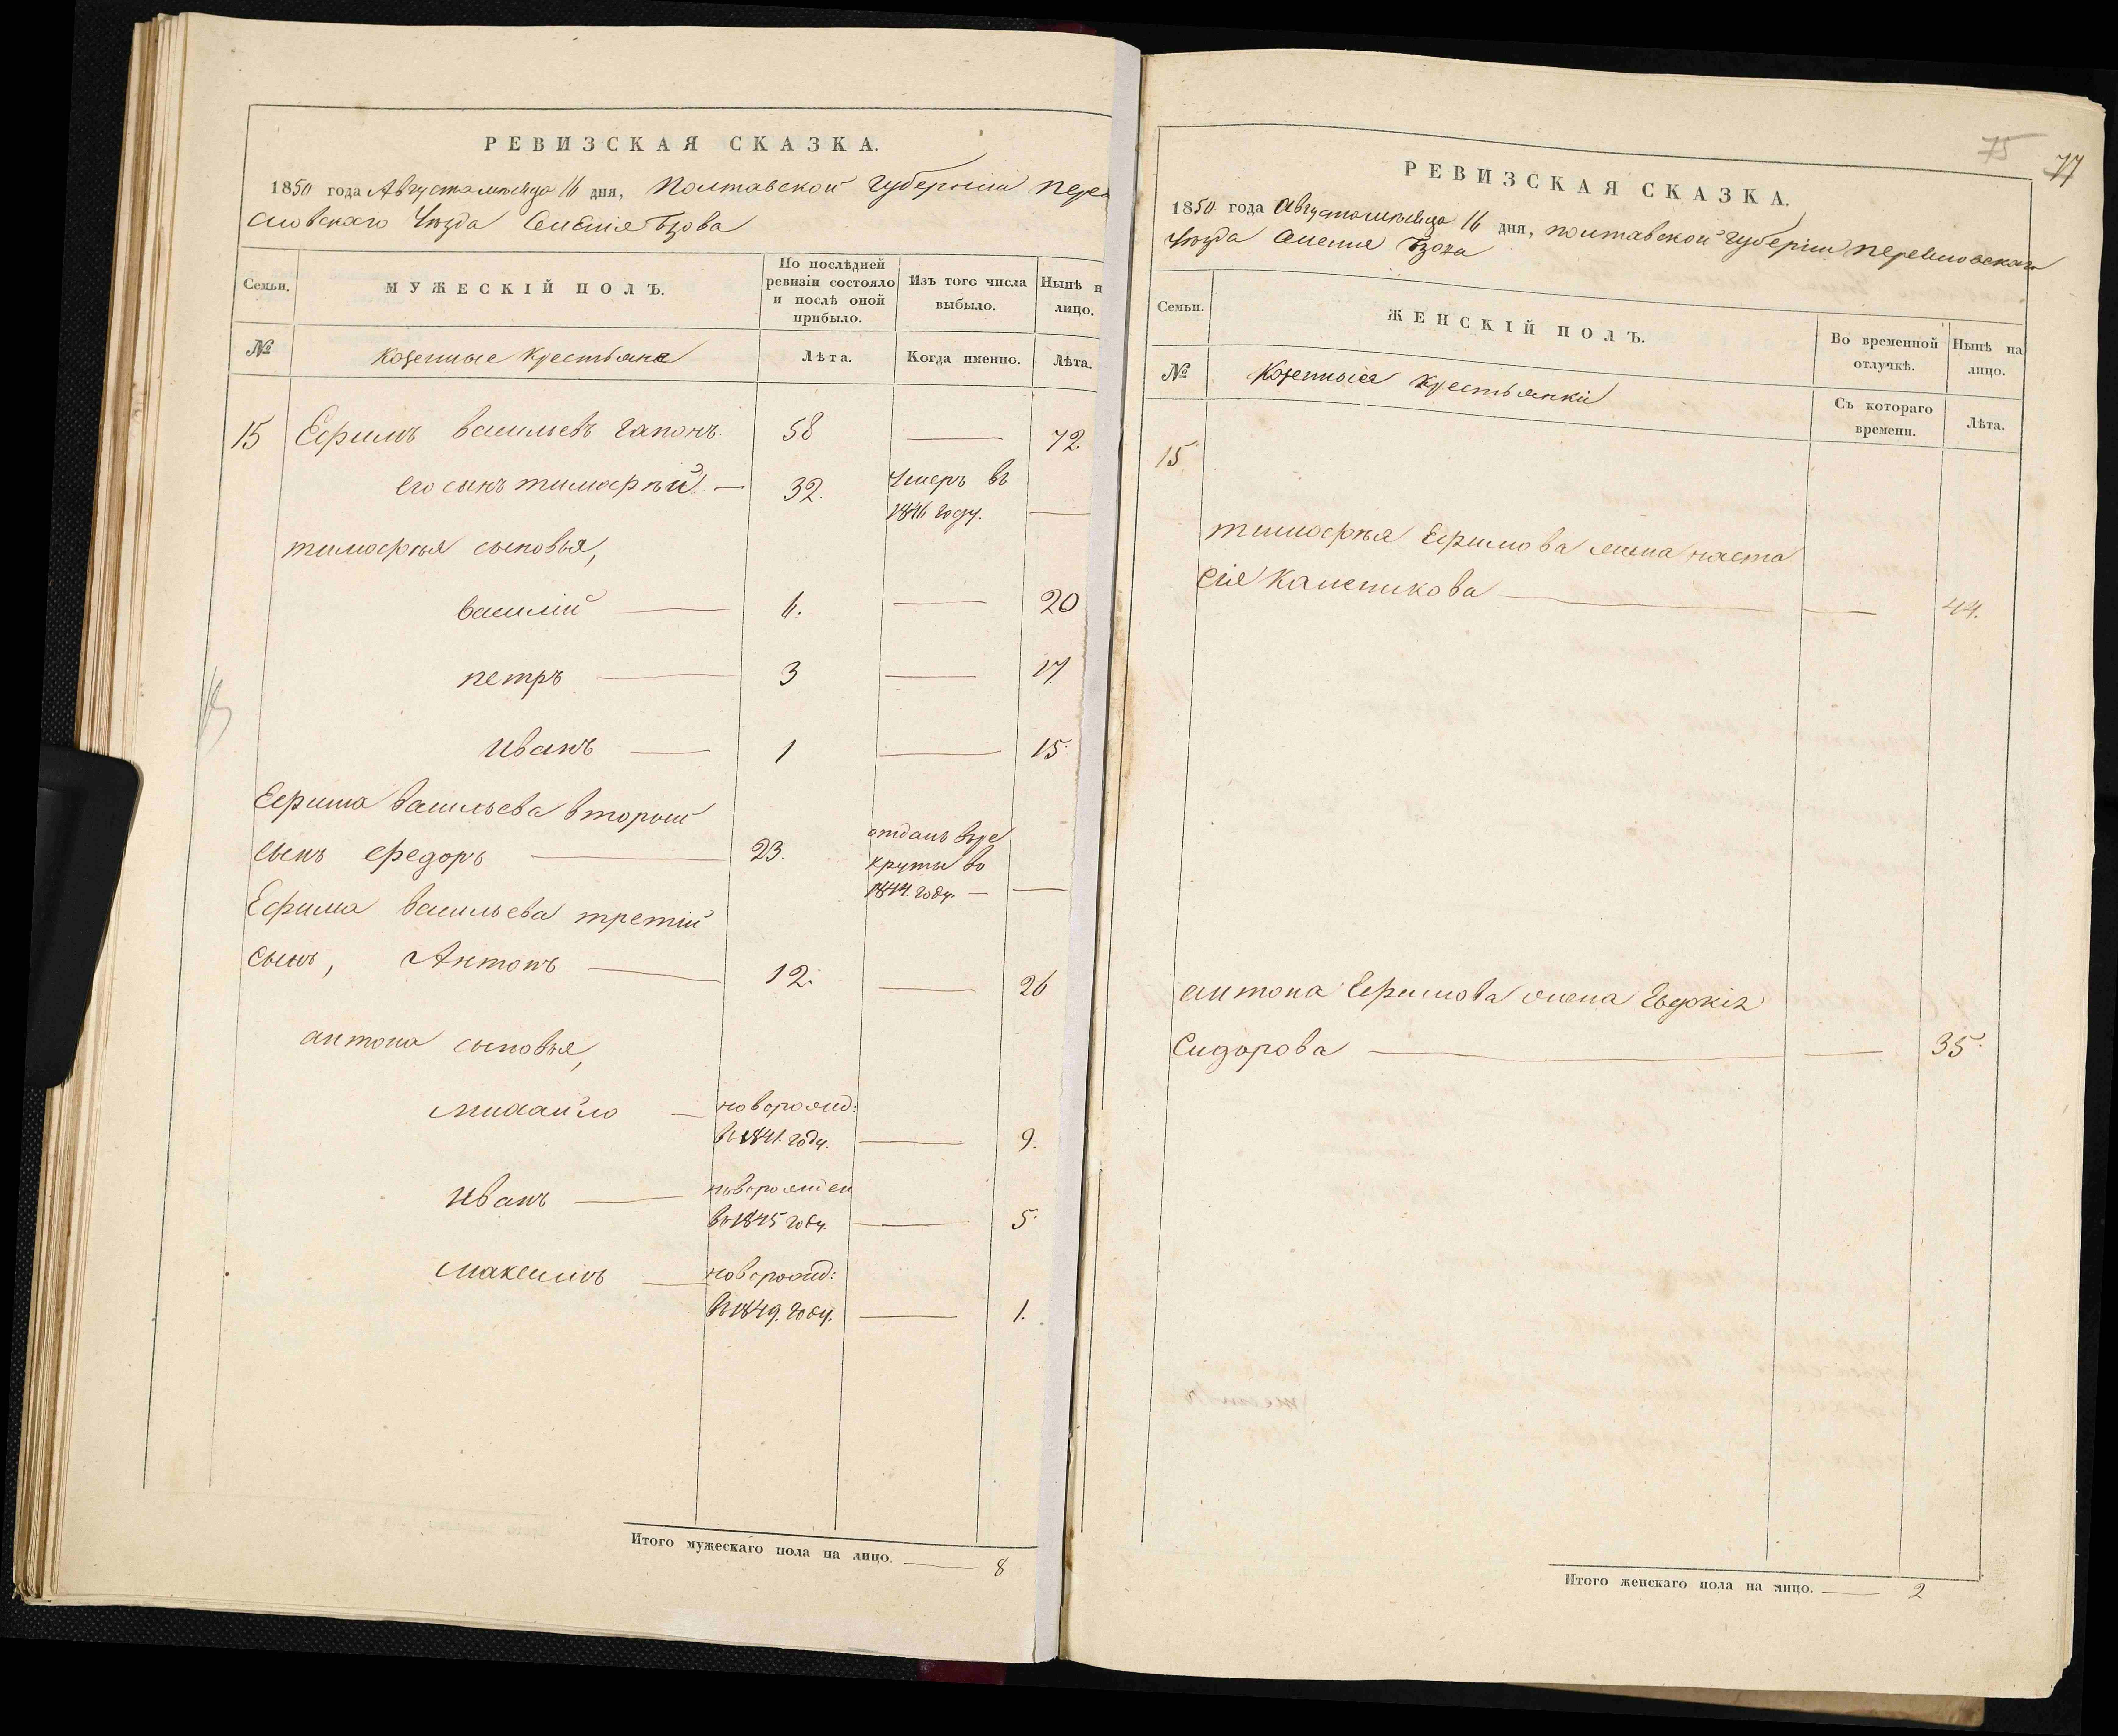 РЕВИЗСКАЯ СКАЗКА.
1850 года Августа месяца 16 дня, Полтавской губернии Перея
словскаго Уезда Селения Бзова
Семьи.
МУЖЕСКІЙ ПОЛЪ.
По послѣдней ревизіи состояло и послѣ оной прибыло.
Изъ того числа выбыло.
Нынѣ н лицо.
№
Казенные Крестьяне
Лѣта.
Когда именно.
Лѣта.
15 Ефимъ васильевъ гапонъ. 58 — 72
его сынъ тимофѣй — 32. Умеръ въ
1846 году. —
тимофѣя сыновья,
василій — 6. — 20
петръ — 3 — 17
иванъ — 1 — 15
Ефима васильева вторый
сынъ федоръ — 23. отданъ въре
круты во
1844. году. — —
Ефима васильева третій
сынъ, Антонъ — 12. — 26
антона сыновья,
михайло — новорожд:
въ 1841. году. — 9.
иванъ — новорожден
въ 1845 году. — 5.
максимъ — новорожд:
въ 1849. году. — 1.
Итого мужескаго пола на лицо. — 8
75 77
РЕВИЗСКАЯ СКАЗКА.
1850 года Августа месяца 16 дня, полтавской губерніи переясловскаго
Уезда Селения Бзова
Семьи.
ЖЕНСКІЙ ПОЛЪ.
Во временной отлучкѣ.
Нынѣ на лицо.
№
Казенныя крестьянки
Съ котораго времени.
Лѣта.
15
тимофѣя Ефимова жена наста
сія — — 44.
антона Ефимова жена Евдокія
Сидорова — — 35.
Итого женскаго пола на лицо. — 2